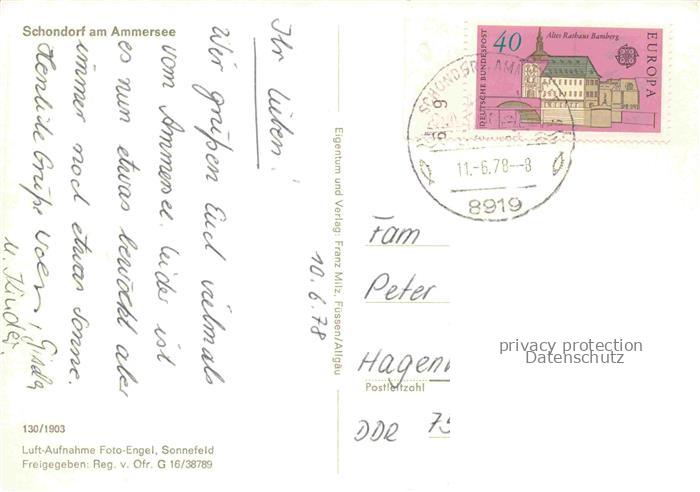 Schondorf am Ammersee
Ihr Lieben!
Wir grüßen Euch vielmals
vom Ammersee. Leider ist
es nun etwas bewölkt aber
immer noch etwas Sonne.
Herzliche Grüße Gisela
u. Kinder.
10.6.78
130/1903
Luft-Aufnahme Foto-Engel, Sonnefeld
Freigegeben: Reg. v. Ofr. G 16/38789
Eigentum und Verlag: Franz Milz, Füssen/Allgäu
DEUTSCHE BUNDESPOST
40
Altes Rathaus Bamberg
EUROPA
11.-6.78--8
8919
Fam
Peter
Hagen
Postleitzahl
DDR 75
privacy protection
Datenschutz